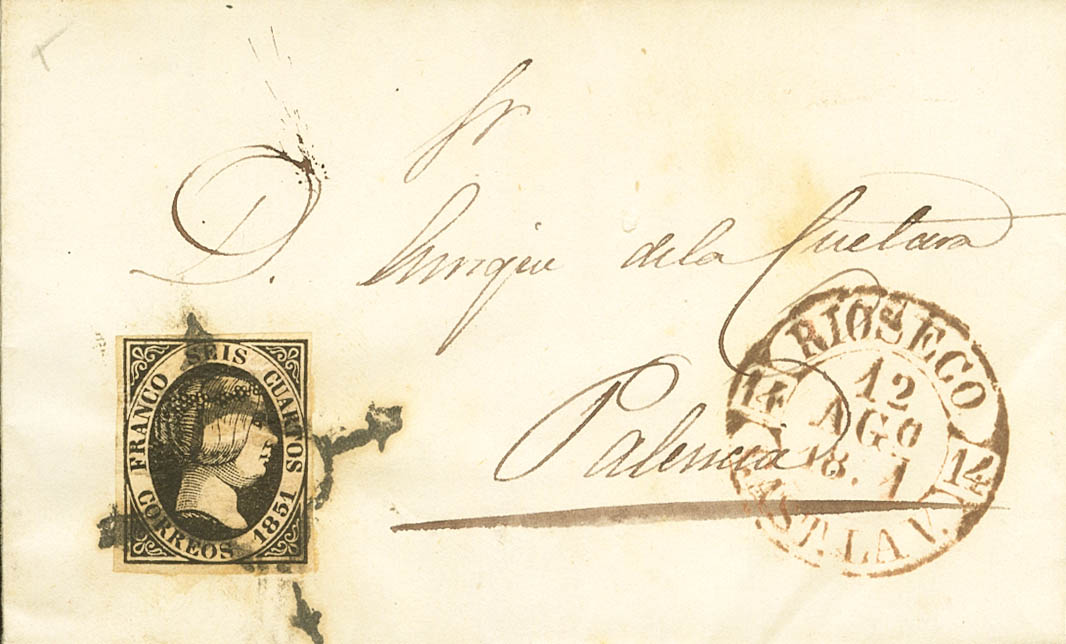 Sr
D. Enrique de la Cuetara
Palencia
FRANCO SEIS CUARTOS
CORREOS 1851
RIOSECO
14 14
12
AGO
1851
CAST. LA V.